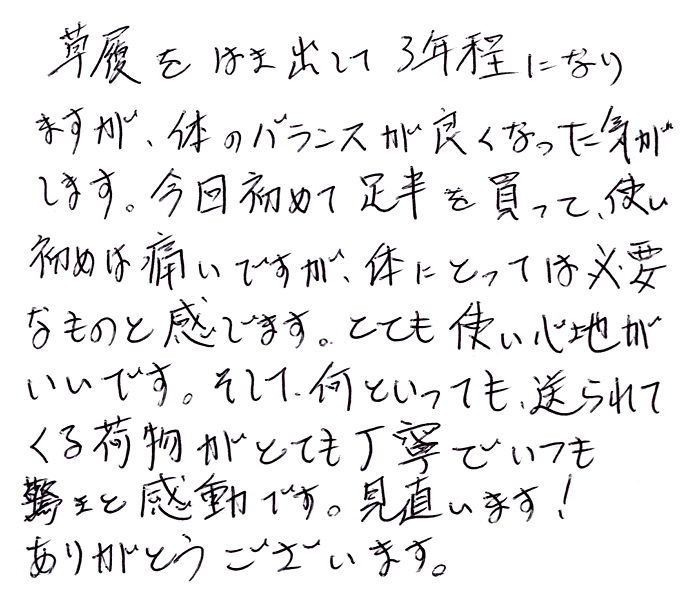 草履をはき出して3年程になり
ますが、体のバランスが良くなった気が
します。今回初めて足半を買って、使い
初めは痛いですが、体にとっては必要
なものと感じます。とても使い心地が
いいです。そして、何といっても、送られて
くる荷物がとても丁寧でいつも
驚きと感動です。見直います!
ありがとうございます。